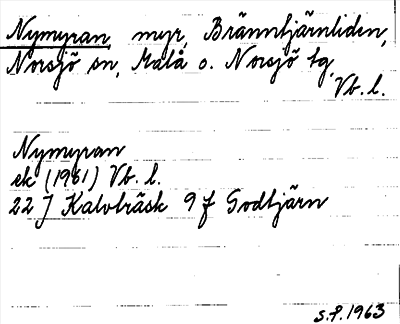 Nymyran myr, Bränntjärnliden,
Norsjö sn, Malå o. Norsjö tg,
Vb. l.
Nymyran
ek (1961) Vb. l.
22 J Kalvträsk 9 f Godtjärn
S.P. 1963